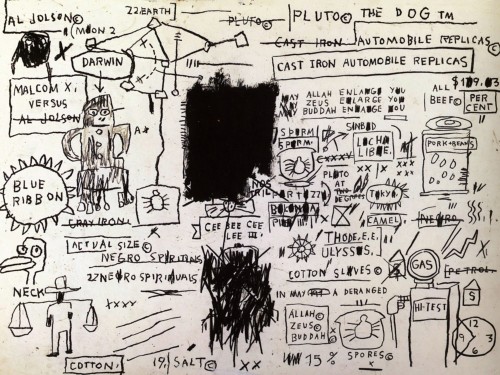 AL JOLSON©
MOON 2
22.EARTH
PLUTO©
PLUTO© THE DOG TM
CAST IRON AUTOMOBILE REPLICAS©
CAST IRON AUTOMOBILE REPLICAS
X
DARWIN
MALCOM X,
VERSUS
AL JOLSON
BLUE
RIBBON
GRAY IRON.
ACTUAL SIZE©
NEGRO SPIRITUALS
22 NEGRO SPIRITUALS
NECK
XXXY
COTTON.
19, SALT©
XX
CEE BEE CEE
LEE III.
MAY ALLAH ENLARGE YOU
MAY ZEUS ENLARGE YOU
MAY BUDDAH ENLARGE YOU
SPERM
SPERM.
SINBAD
LUCHA
LIBRE.
PLUTO
AT
TOKYO
CAMEL.
THODE, E.E.
ULYSSUS.
COTTON SLAVES©
IN MAY A DERANGED
ALLAH©
ZEUS©
BUDDAH
15% SPORES©
X
ALL
BEEF©
PER
CENT
PORK+BEANS
NEGRO.
GAS
PETROL.
HI-TEST
S
12
3
6